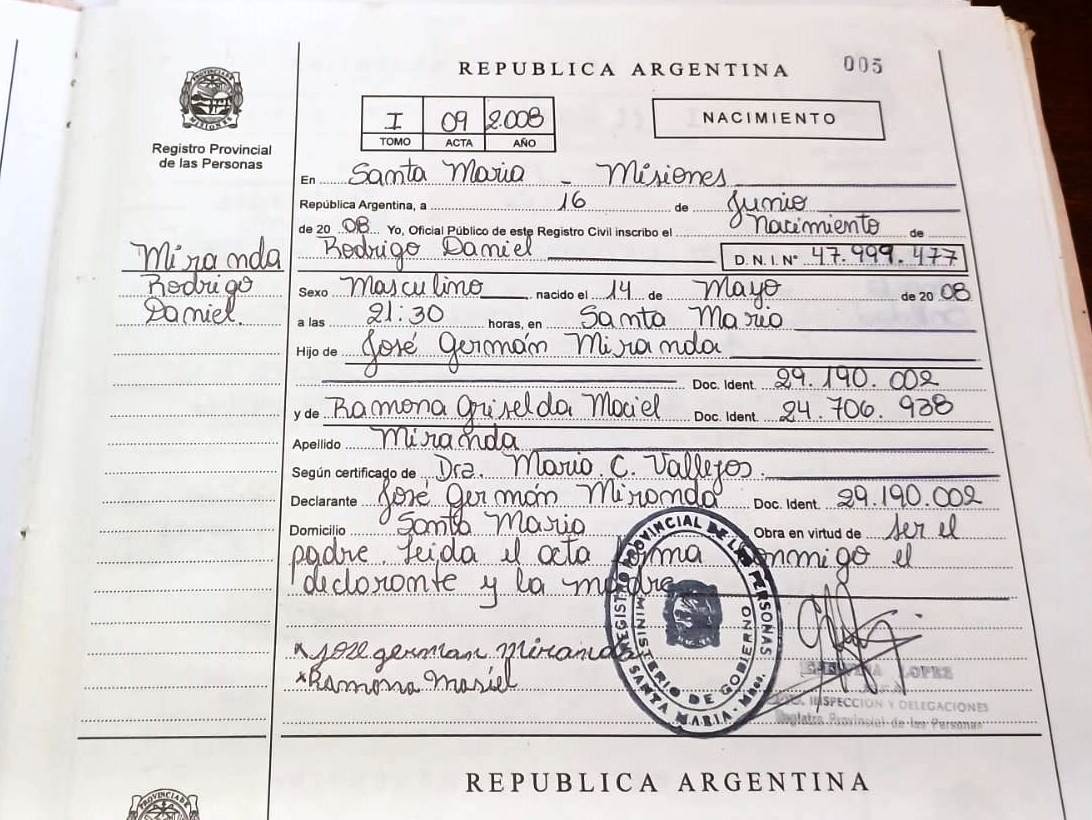 REPUBLICA ARGENTINA 005
PROVINCIA DE MISIONES
Registro Provincial
de las Personas
I 09 2.008
TOMO ACTA AÑO
NACIMIENTO
En Santa Maria - Misiones
República Argentina, a 16 de Junio
de 20 08 Yo, Oficial Público de este Registro Civil inscribo el Nacimiento de
Rodrigo Daniel D.N.I.N° 47.999.477
Miranda
Rodrigo
Daniel.
Sexo Masculino nacido el 14 de Mayo de 20 08
a las 21:30 horas, en Santa Maria
Hijo de José Germán Miranda
Doc. Ident. 29.190.002
y de Ramona Griselda Maciel Doc. Ident. 24.706.938
Apellido Miranda
Según certificado de Dra. Maria C. Vallejos.
Declarante José Germán Miranda Doc. Ident. 29.190.002
Domicilio Santa Maria Obra en virtud de ser el
padre. Leida el acta firma conmigo el
declarante y la madre
x Jose german Miranda
x Ramona Masiel
REGISTRO PROVINCIAL DE LAS PERSONAS
MINISTERIO DE GOBIERNO
SANTA MARIA - Mnes.
LOPEZ
INSPECCION Y DELEGACIONES
Registro Provincial de las Personas
REPUBLICA ARGENTINA
PROVINCIA DE